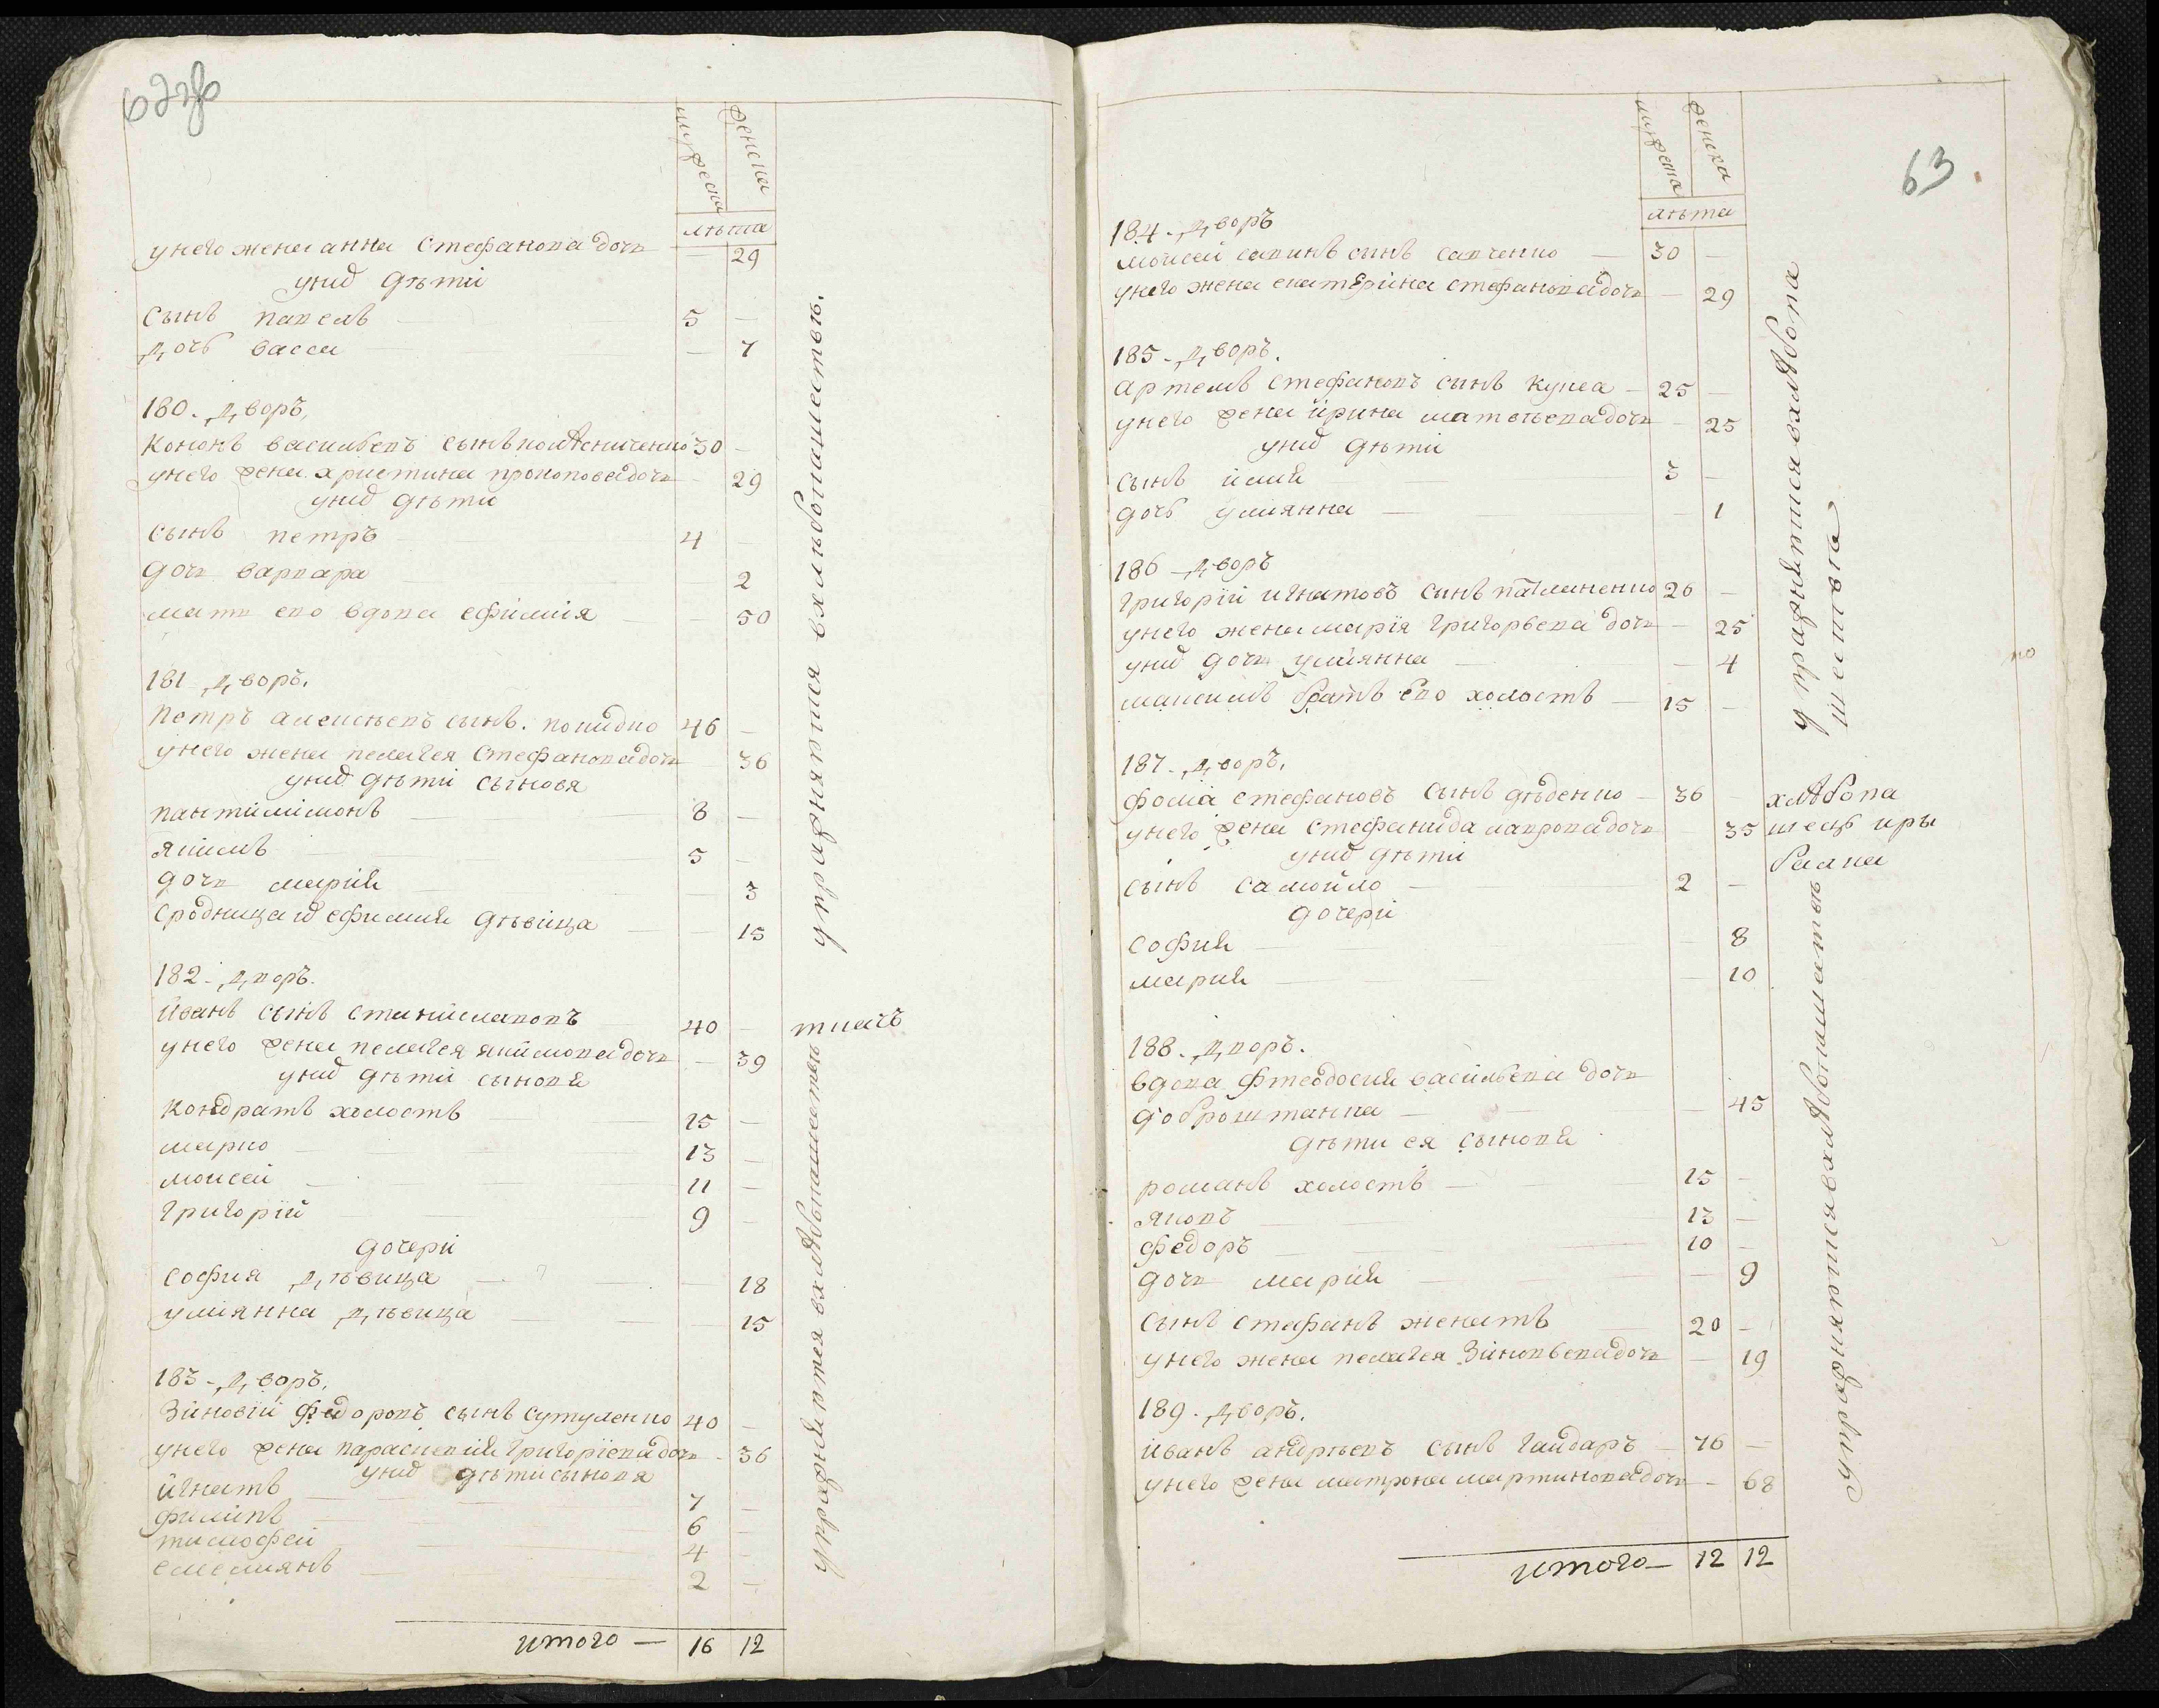 62зв
мужеска
женска
лѣта
у него жена анна Стефанова дочь — 29
у них дѣти
Сынъ павелъ — 5 —
Дочь васса — 7
180. Дворъ,
Кононъ васильевъ сынъ 30 —
у него жена христина прокопова дочь — 29
у них дѣти
Сынъ петръ — 4
Дочь варвара — 2
мать его вдова ефимия — 50
181 Дворъ.
Петръ алексѣевъ сынъ. 46 —
у него жена пелагея Стефанова дочь 36
у них дѣти сыновя
пантилимонъ — 8 —
якимъ — 5 —
дочь мария — 3
Сродница их ефимия дѣвица — 15
182. Дворъ.
Иванъ сынъ станиславовъ 40 — ткачъ
у него жена пелагея якимова дочь — 39
у них дѣти сыновя
Кондратъ холостъ — 15 —
марко — 13 —
моисей — 11 —
григорій — 9 —
дочери
София дѣвица — 18
улиянна дѣвица — 15
183 - Дворъ.
Зиновій Федоровъ сынъ Сутуленко 40 —
у него жена параскевия григоріева дочь - 36
у них дѣти сыновя
игнатъ — 7 —
филипъ — 6 —
тимофей — 4 —
емелиянъ — 2 —
итого — 16 12
упражняются в хлѣбопашествѣ.
упражняются в хлѣбопашествѣ
63.
мужеска
женска
лѣта
184. Дворъ
моисей савинъ сынъ савченко — 30 —
у него жена екатерина стефанова дочь — 29
185 - Дворъ.
артемъ стефановъ сынъ куца — 25 —
у него жена ирина матвѣева дочь — 25
у них дѣти
сынъ илия 3 —
дочь улиянна — 1
186 - Дворъ
григорій игнатовъ сынъ 26 —
у него жена мария григорьева дочь — 25
у них дочь улиянна — 4
максимъ братъ его холостъ — 15 —
187 - Дворъ.
фома стефановъ сынъ дѣденко — 36 — хлѣбопа
у него жена стефанида лаврова дочь 35 шецъ иры
у них дѣти балка
сынъ самойло — 2 —
дочери
София — 8
мария — 10
188. Дворъ.
вдова Фтеодосия васильева дочь
доброштанка — 45
дѣти ея сыновя
романъ холостъ — 15 —
яковъ — 13 —
федоръ — 10 —
дочь мария — 9
сынъ стефанъ женатъ 20 —
у него жена пелагея Зиновьева дочь — 19
189. Дворъ.
иванъ андрѣевъ сынъ гайдаръ — 76 —
у него жена матрона мартинова дочь — 68
итого — 12 12
упражняются в хлѣбопа
шествѣ
упражняются в хлѣбопашествѣ